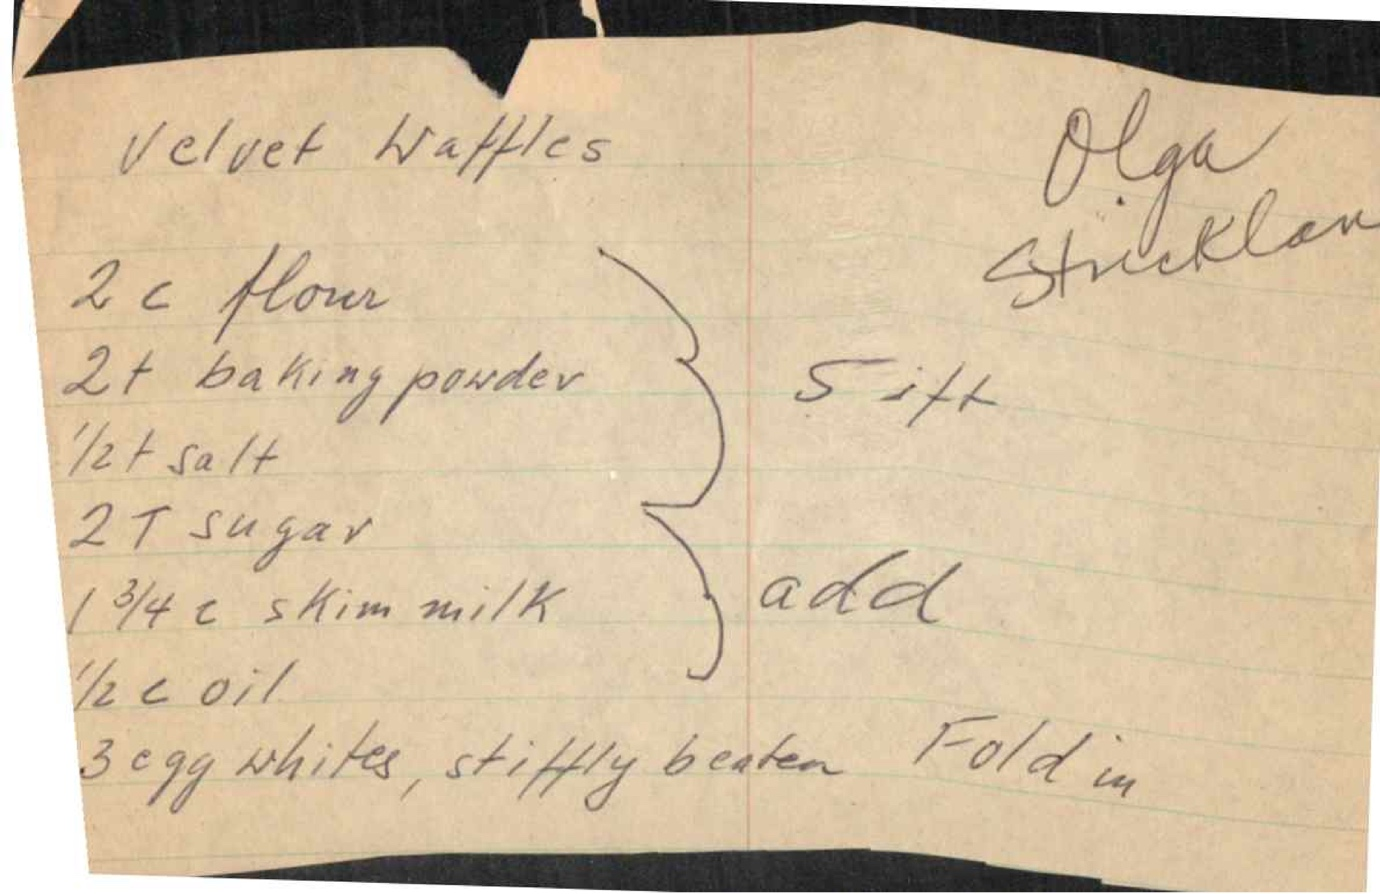 Velvet Waffles
Olga
Stricklan
2 c flour
2t baking powder
1/2t salt
Sift
2T sugar
1 3/4 c skim milk
1/2 c oil
add
3 egg whites, stiffly beaten Fold in